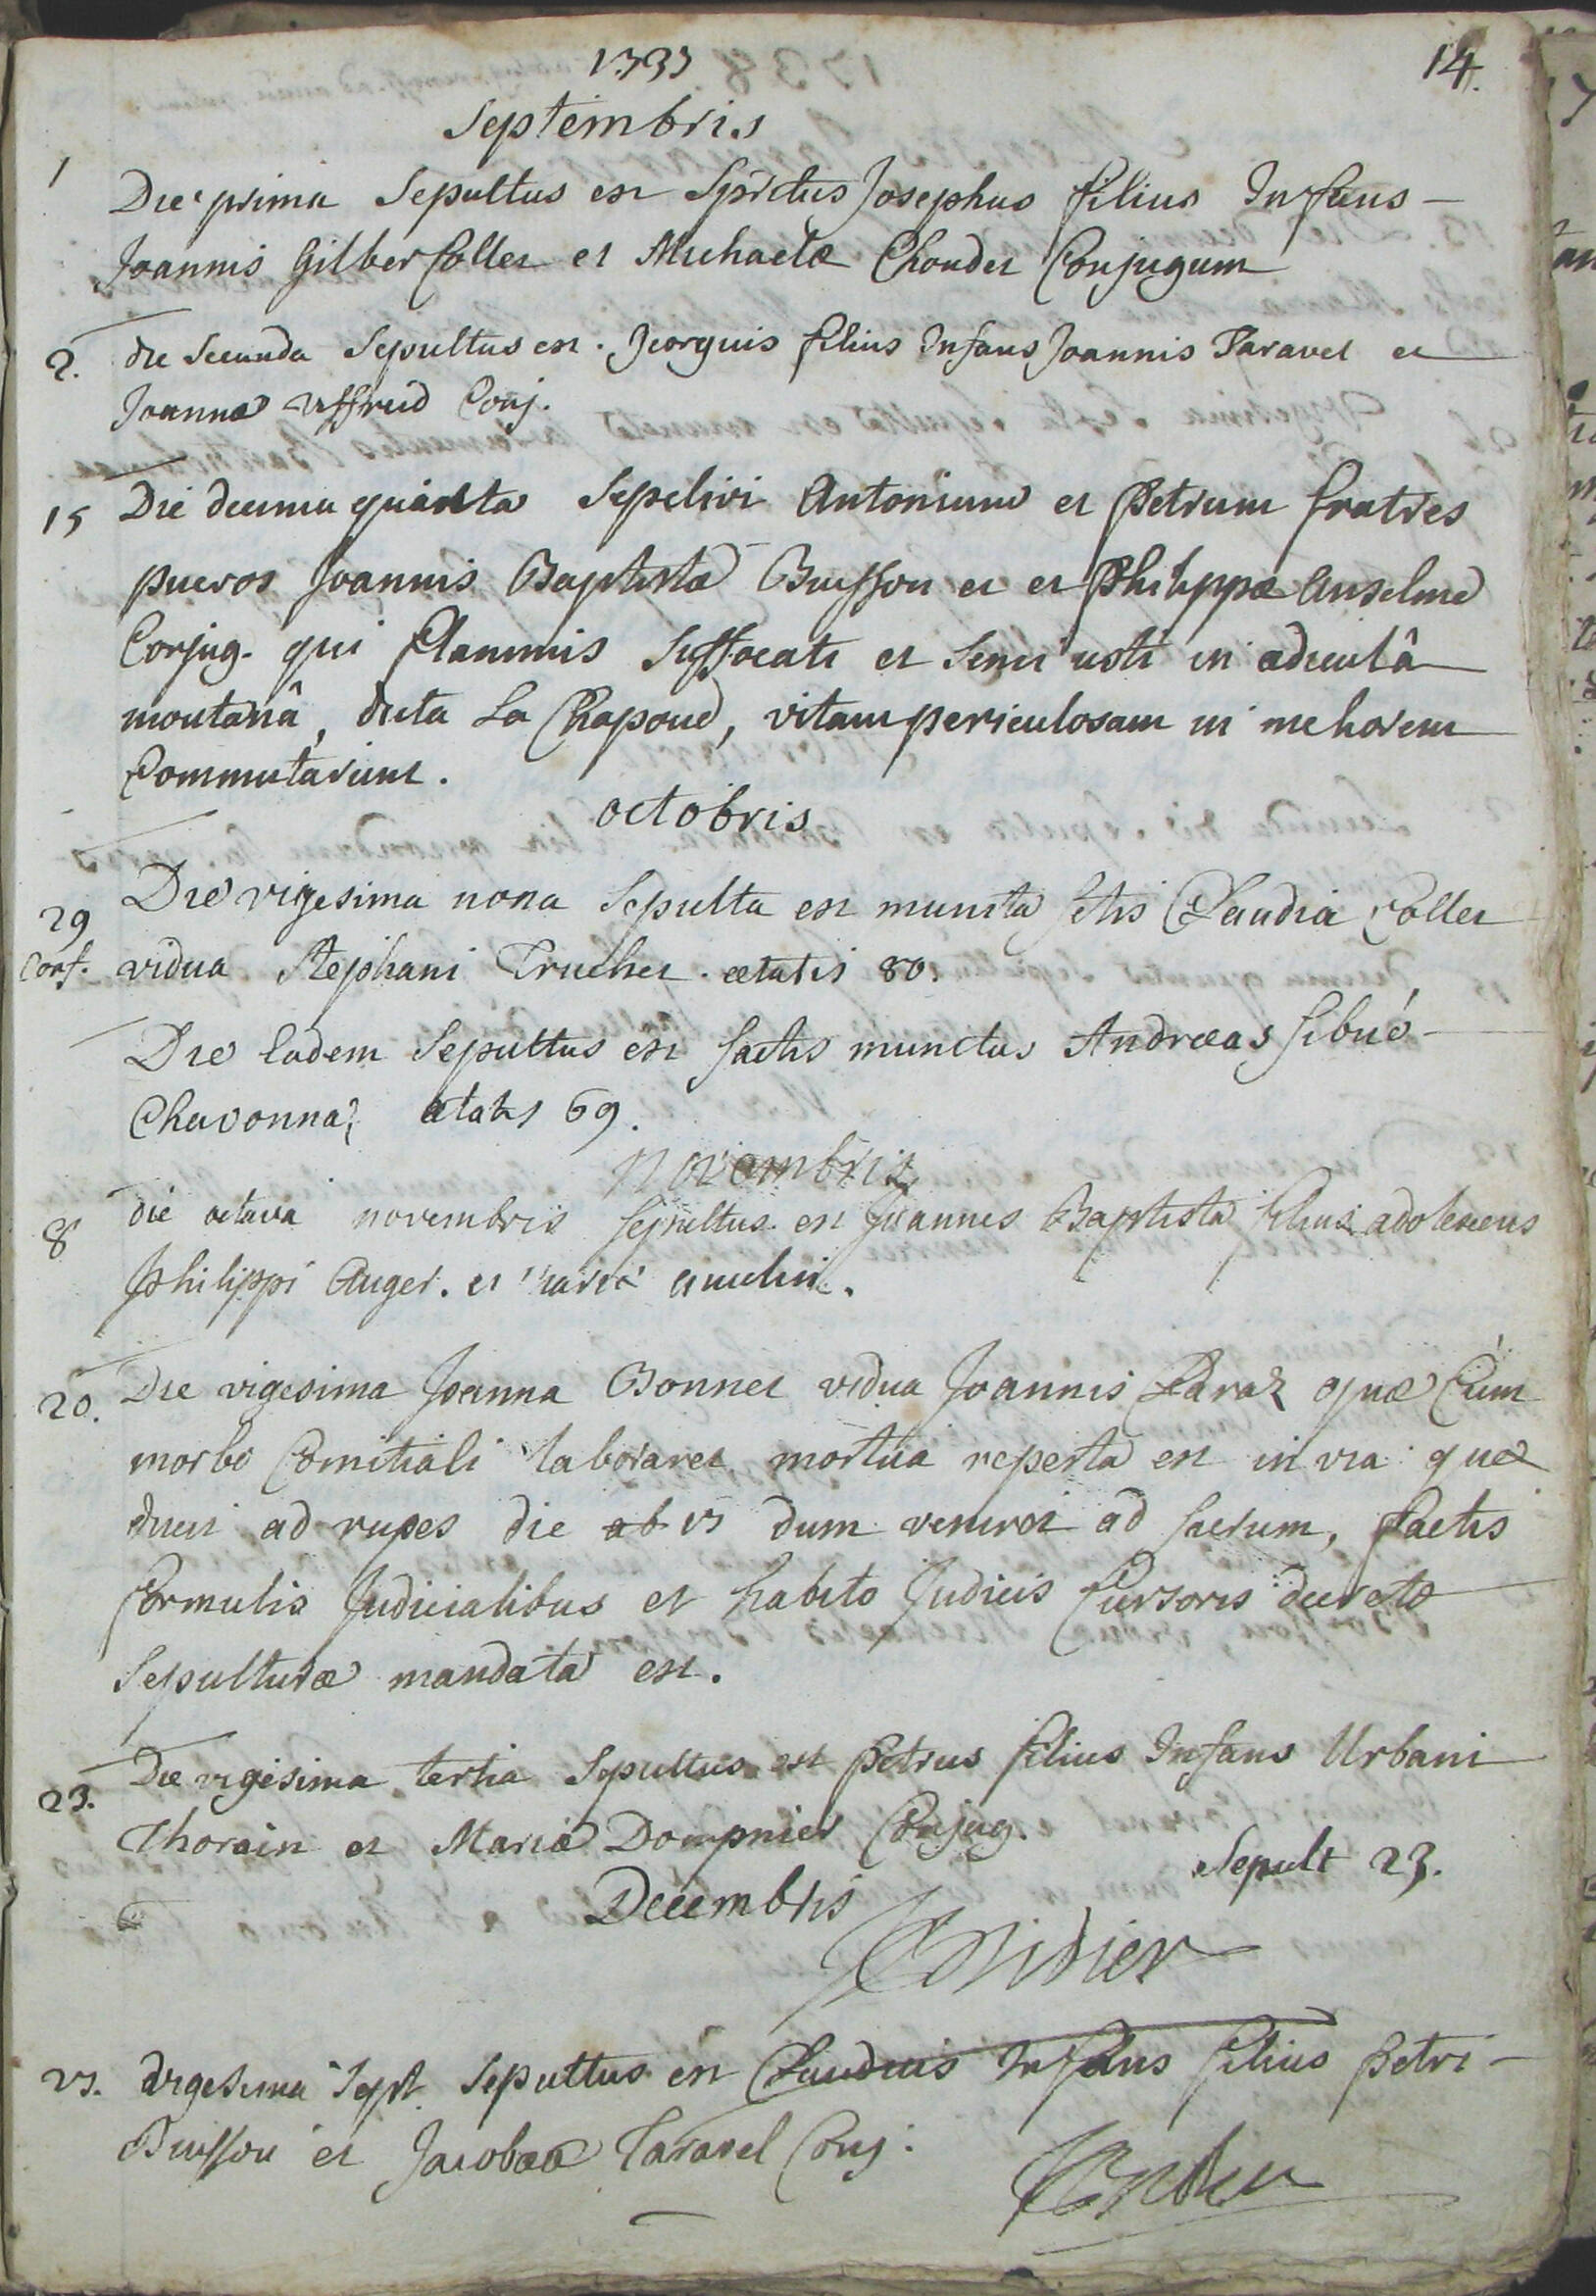 1737
14.
Septembris
1 Die prima Sepultus est Spirítus Josephus filius Infans
Joannis Gilber Collet et Michaelæ Choudet Conjugum
2. die Secunda Sepultus est. Georgius filius Infans Joannis Taravel et
Joannæ Uffred Conj.
15 Die decima quinta Sepelivi Antonium et Petrum fratres
pueros Joannis Baptistæ Buisson et et Philippæ Anselme
Conjug. qui flammis Suffocati et Semi usti in ædiculâ
montanâ, dicta La Chapoue, vitam periculosam in meliorem
Commutarunt.
octobris
29 Die vigesima nona Sepulta est munita sctis Claudia Collet
Conf. vidua Stephani Truchet. ætatis 80.
Die Eadem Sepultus est sactis munitus Andreas Sibué
Chavonnaz ætatis 69.
Novembris
8 die octava novembris sepultus est Joannes Baptista filius adolescens
philippi Auger. et mariæ
20. Die vigesima Joanna Bonnet vidua Joannis Daraz quæ Cúm
morbo Comitiali laboraret mortua reperta est in via quæ
ducit ad rupes die 17 dum veniret ad sacrum, factis
formulis Judicialibus et habito Judicis Cursoris decreto
Sepulturæ mandata est.
23. Die vigesima tertia Sepultus est petrus filius Infans Urbani
Thorain et Mariæ Dompnier Conjug.
Sepult 23.
Decembris
27. vigesima Sept. Sepultus est Claudius Infans filius petri
Buisson et Jacobææ Taravel Conj.